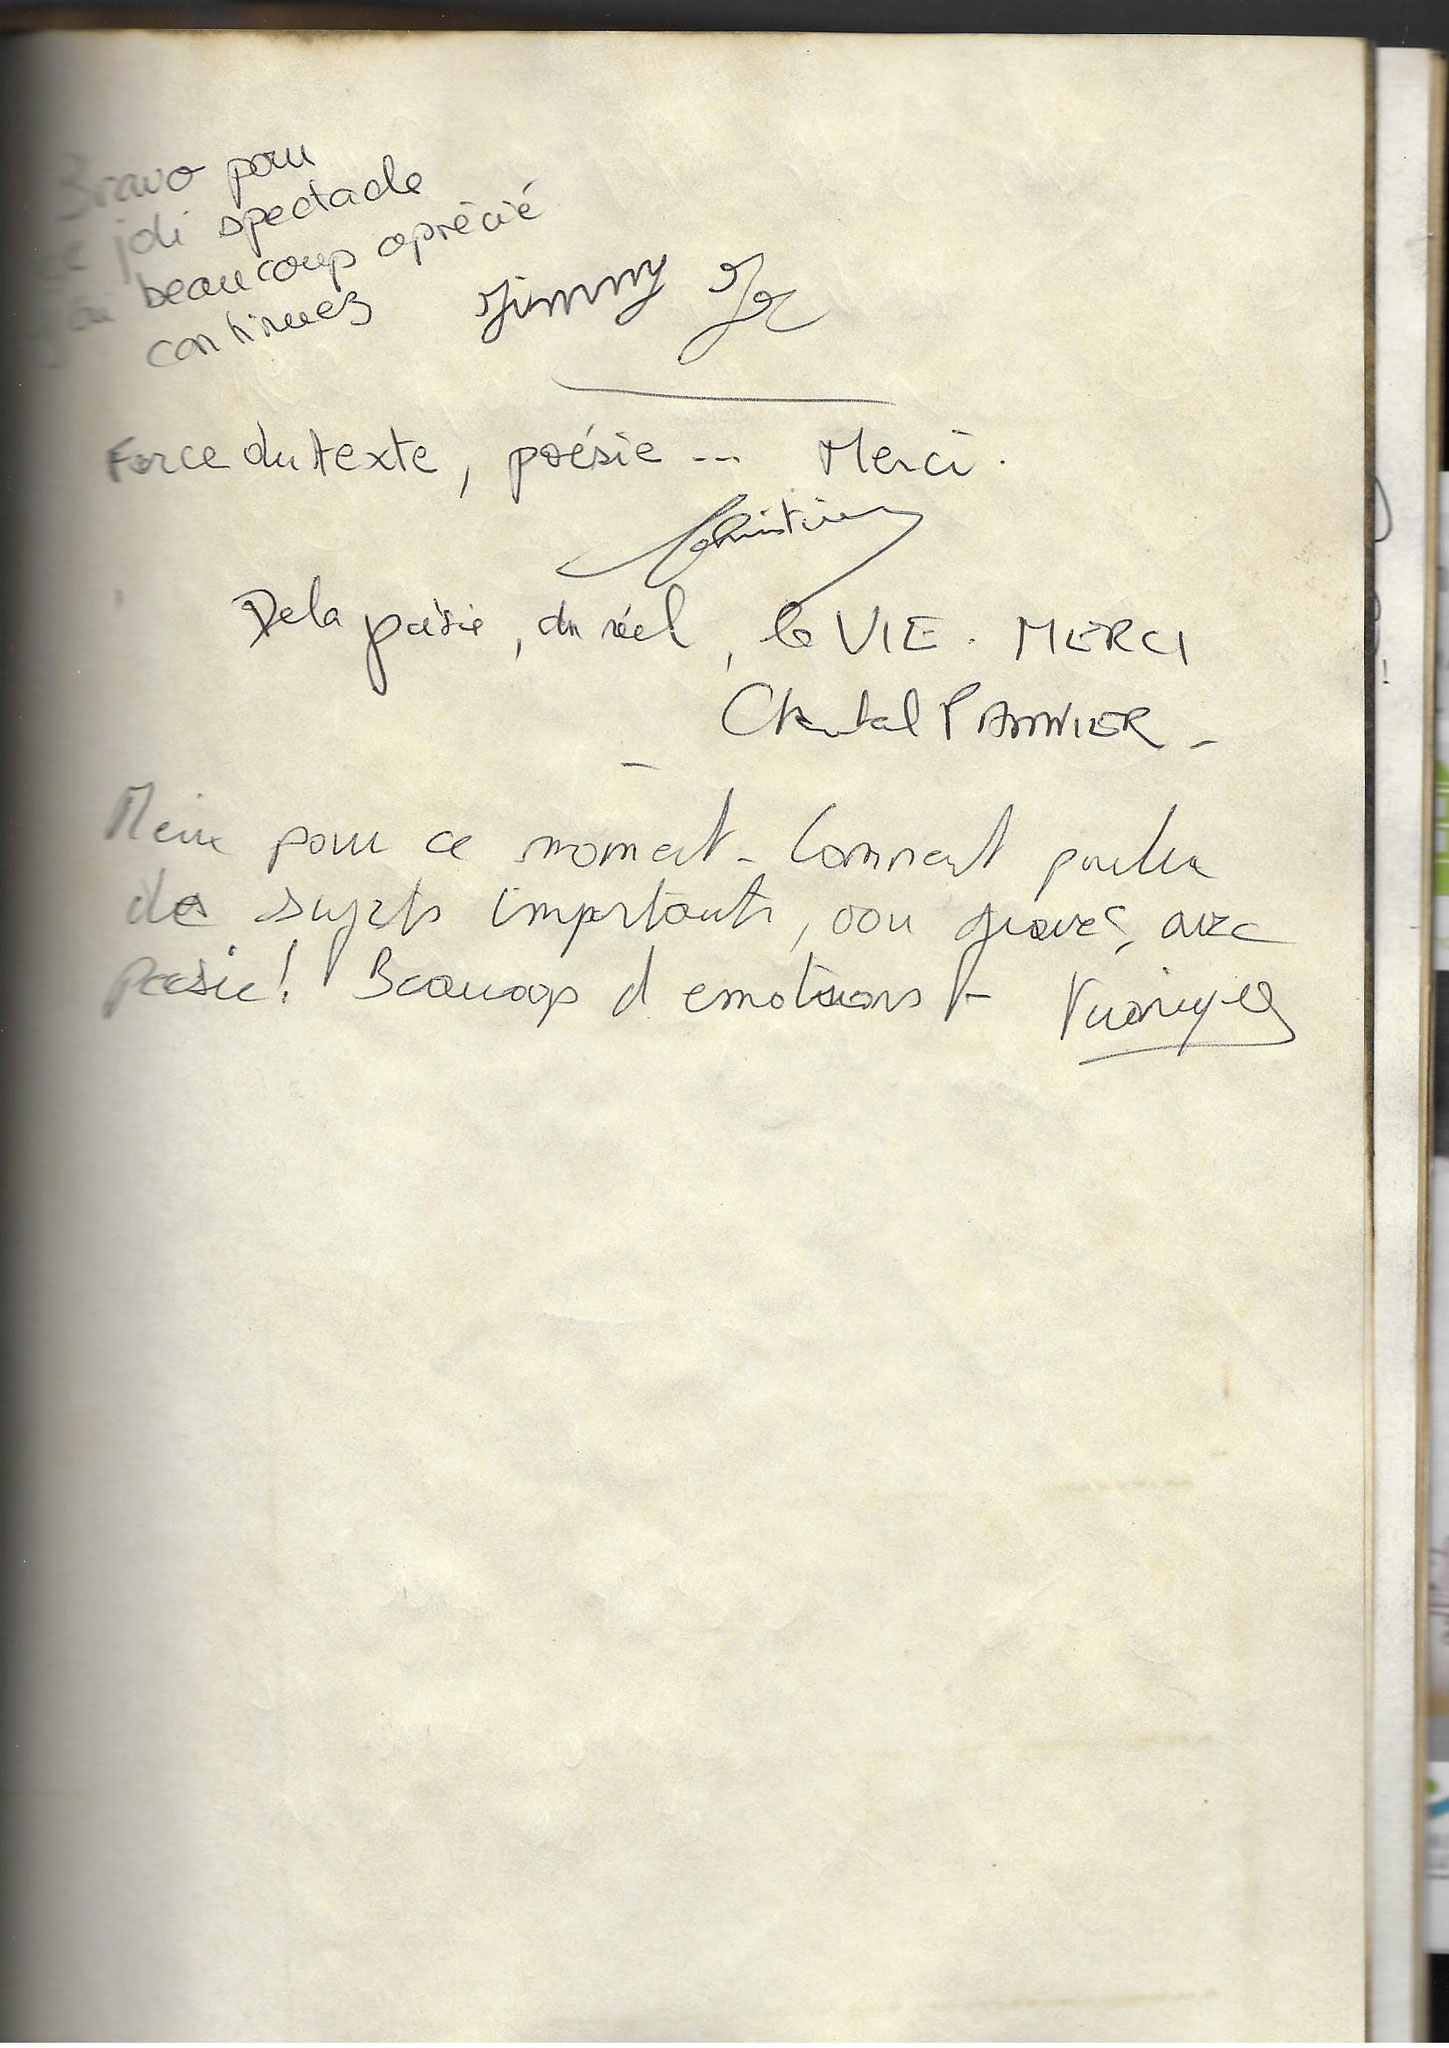 Bravo pour
ce joli spectacle
J'ai beaucoup aprécié
continuez
Jimmy
Force du texte, poésie ... Merci.
Christine
De la poésie, du réel, la VIE. MERCI
Chantal PANNIER -
Merci pour ce moment - Comment parler
des sujets importants, oou graves, avec
poésie! Beaucoup d'emotions